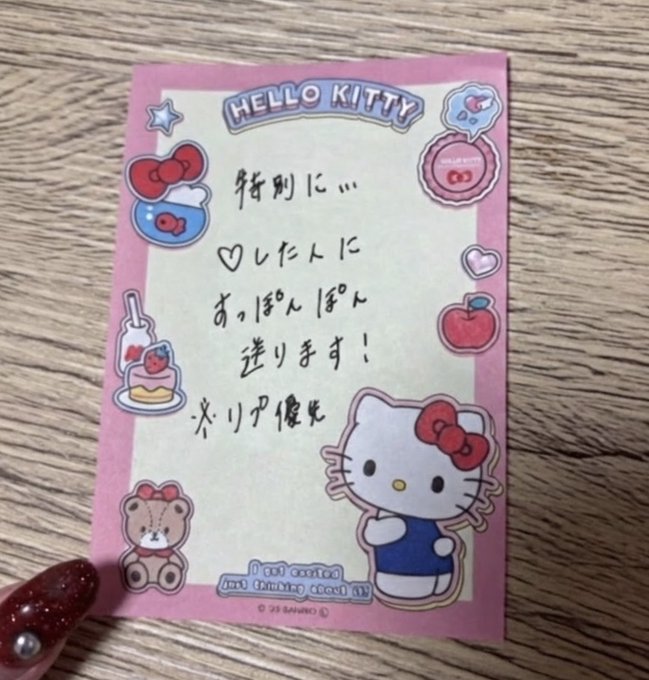 HELLO KITTY
HELLO KITTY
特別に…
♡したんに
すっぽんぽん
送ります!
※リプ優先
I got excited
just thinking about it!
© '23 SANRIO Ⓛ